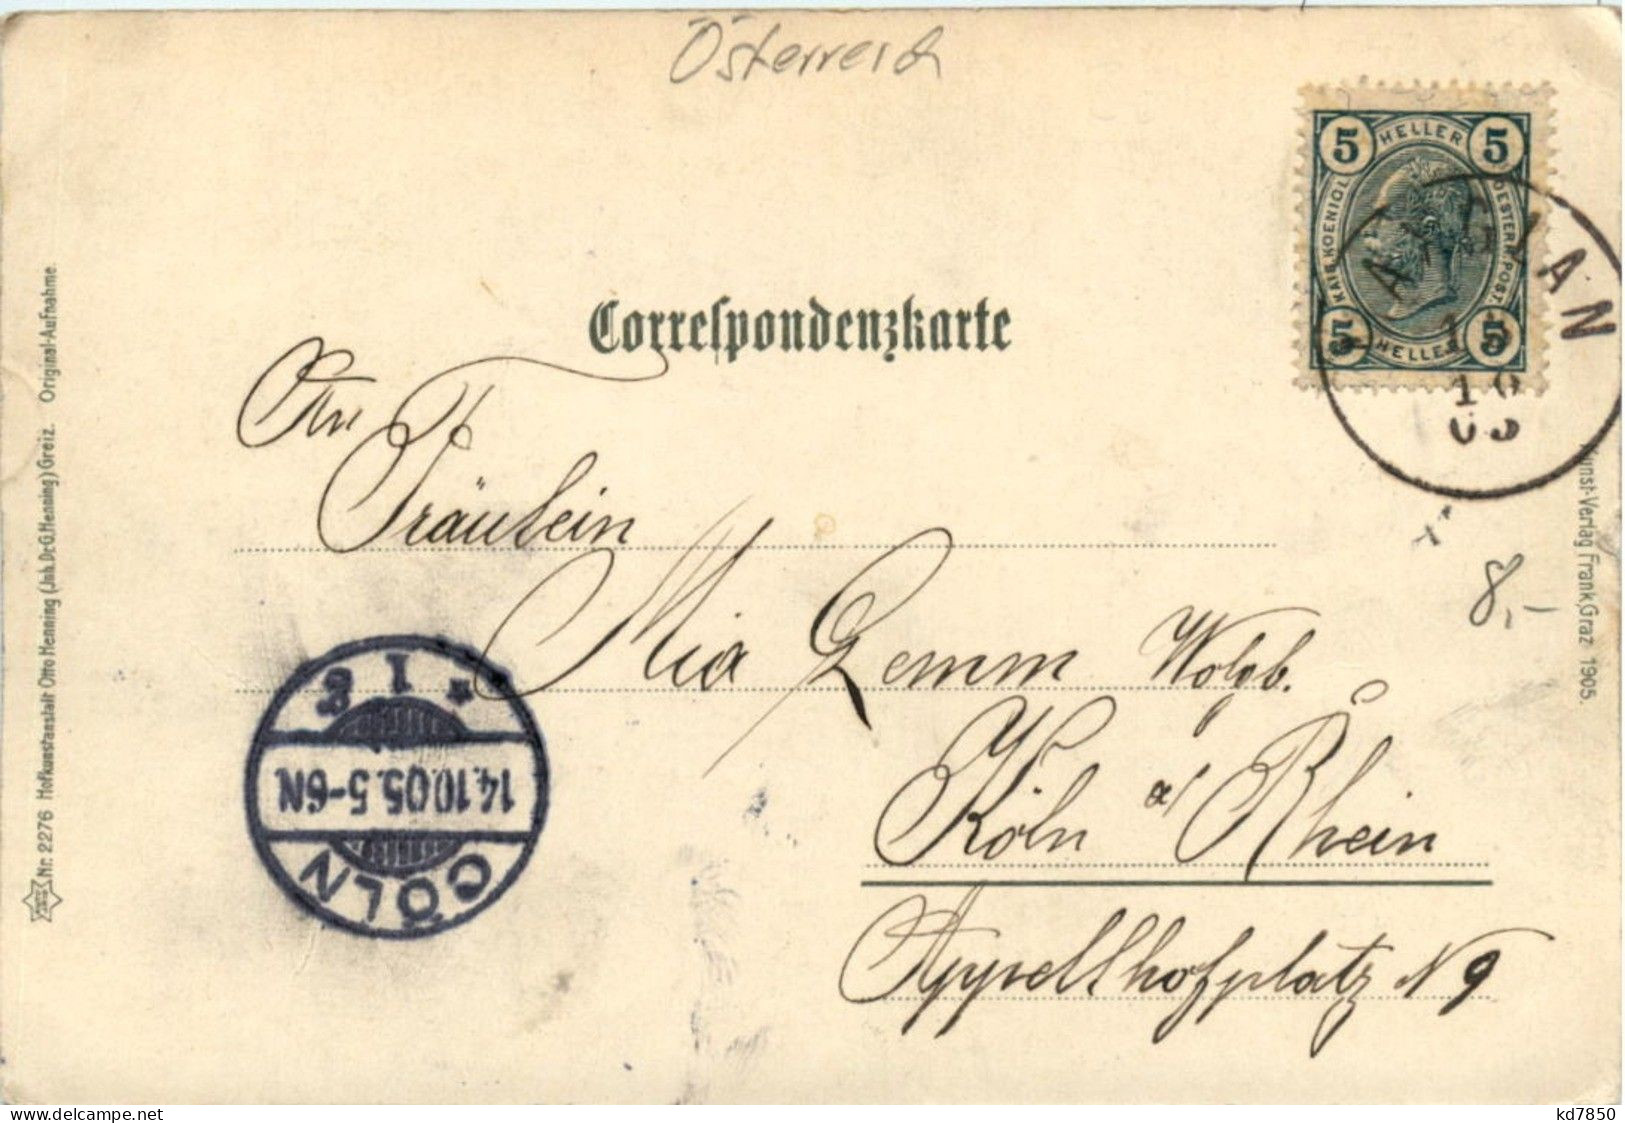 Österreich
5 HELLER 5
KAIS. KOENIGL.
OESTERR. POST.
5 HELLER 5
AIGLAN
10
05
Correspondenzkarte
An
Fräulein
Mia Lemm Wolgb.
Köln a/ Rhein
Appellhofplatz N 9
8,-
CÖLN
14.10.05.5-6N
* 1 g
Nr. 2276 Hofkunstanstalt Otto Henning (Inh. Dr. G. Henning) Greiz. Original-Aufnahme.
Kunst-Verlag Frank, Graz 1905.
www.delcampe.net
kd7850